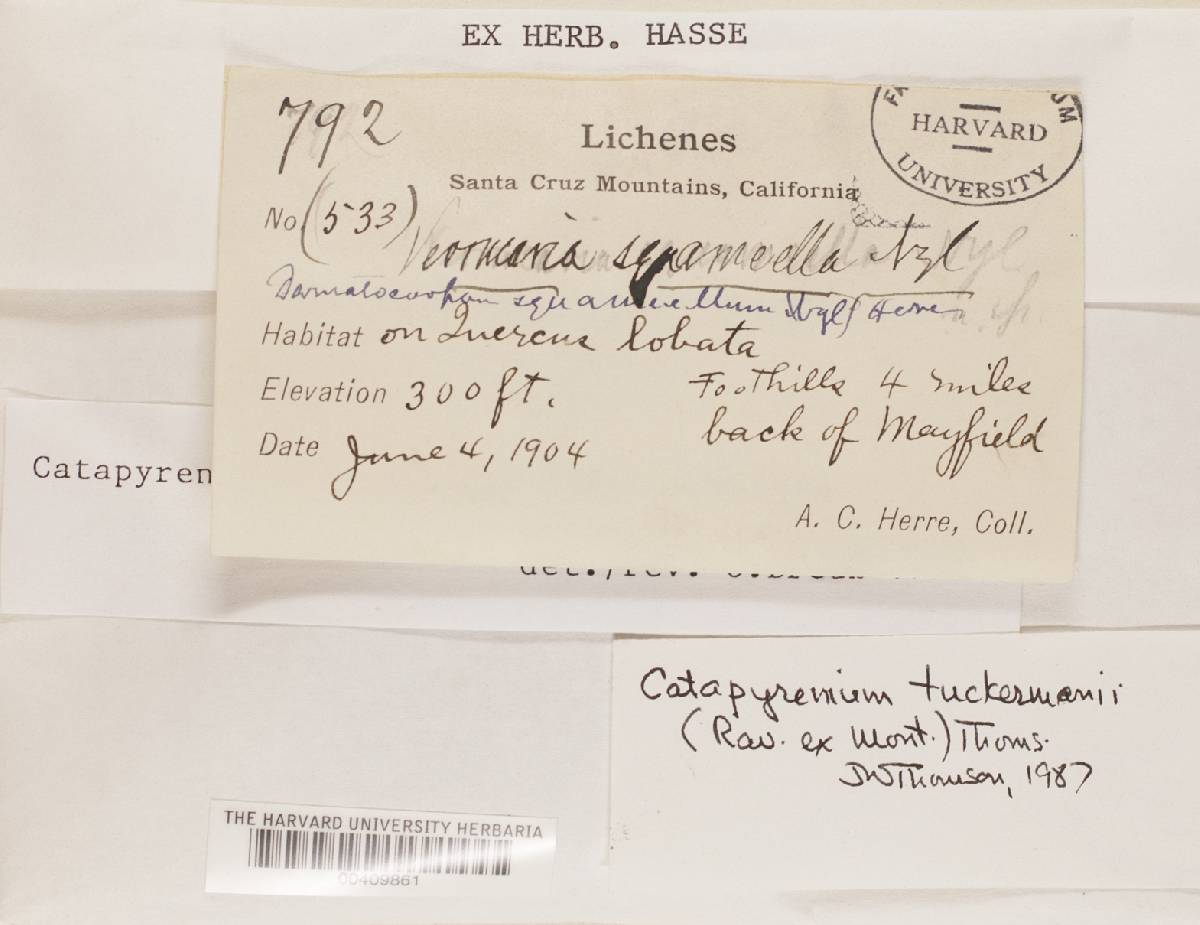 EX HERB. HASSE
792
Lichenes
HARVARD
UNIVERSITY
Santa Cruz Mountains, California
No (533)
Verrucaria squamella Nyl
Dermatocarpon squamellum (Nyl) Herre
Habitat on Quercus lobata
Elevation 300 ft.
Foothills 4 miles
back of Mayfield
Date June 4, 1904
A. C. Herre, Coll.
Catapyren
det./rev.
Catapyrenium tuckermanii
(Rav. ex Mont.) Thoms.
JWThomson, 1987
THE HARVARD UNIVERSITY HERBARIA
00409861